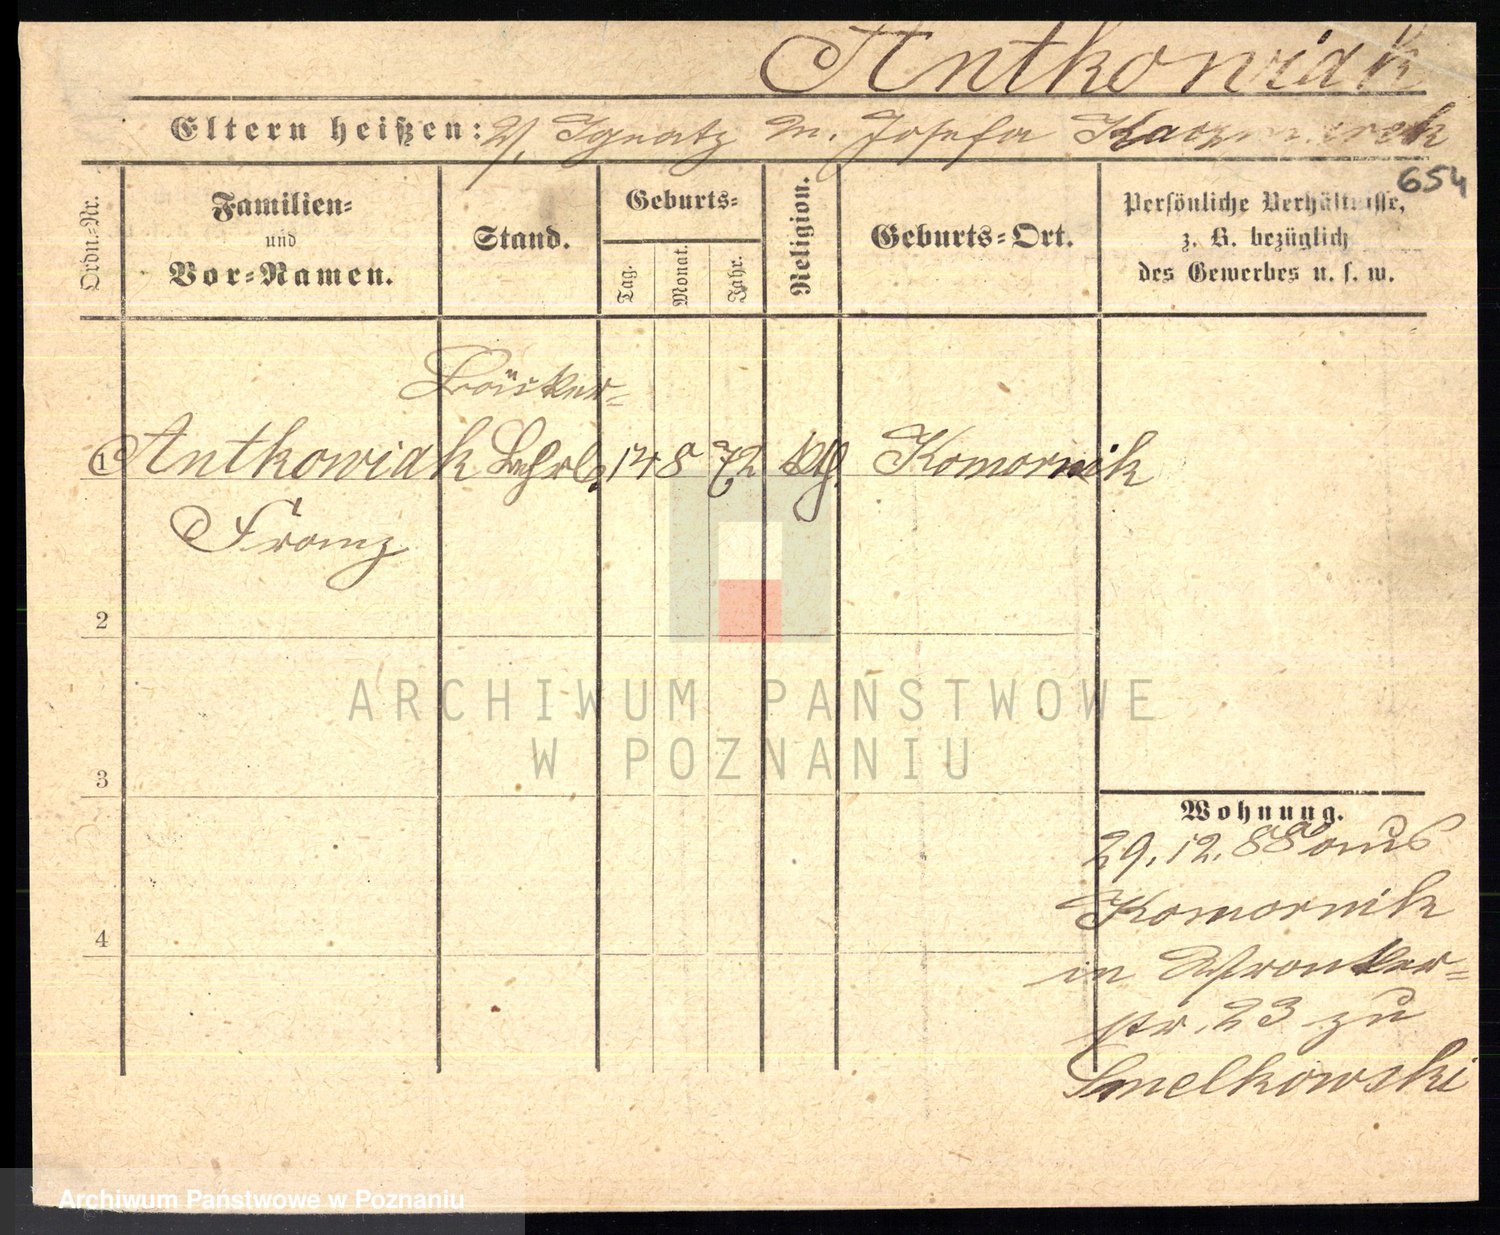 Antkowiak
Eltern heißen: V. Ignatz M. Josefa Kaczmarek
654
Ordn.-Nr.
Familien-
und
Vor-Namen.
Stand.
Geburts-
Tag.
Monat.
Jahr.
Religion.
Geburts-Ort.
Persönliche Verhältnisse,
z. B. bezüglich
des Gewerbes u. s. w.
Bäcker-
1 Antkowiak Lehrl. 14 8 72 kth. Komornik
Franz
2
3
4
ARCHIWUM PAŃSTWOWE
W POZNANIU
Wohnung.
29.12.88 aus
Komornik
in Wronker-
str. 23 zu
Smelkowski
Archiwum Państwowe w Poznaniu